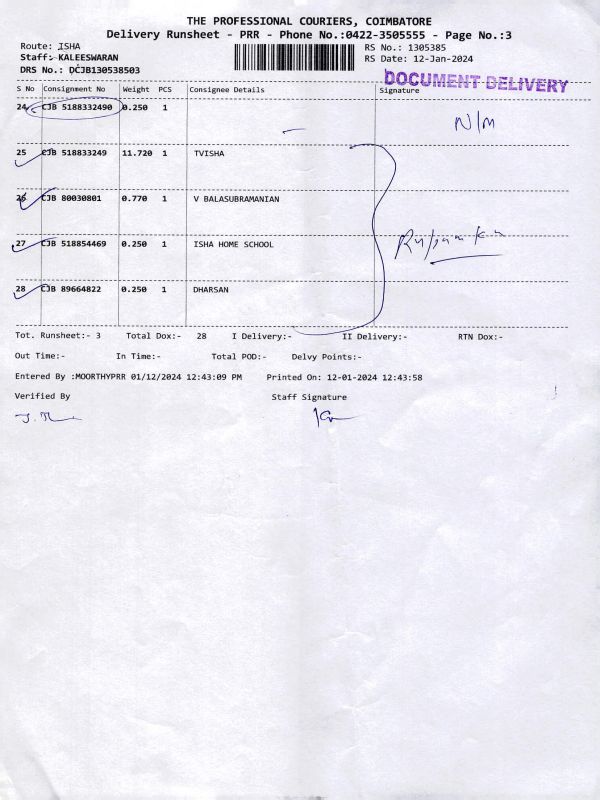 THE PROFESSIONAL COURIERS, COIMBATORE
Delivery Runsheet - PRR - Phone No.:0422-3505555 - Page No.:3
Route: ISHA
RS No.: 1305385
Staff: KALEESWARAN
RS Date: 12-Jan-2024
DRS No.: DCJB130538503
DOCUMENT DELIVERY
S No Consignment No Weight PCS Consignee Details Signature
24 CJB 518832490 0.250 1
N/M
25 CJB 518833249 11.720 1 TVISHA
26 CJB 80030801 0.770 1 V BALASUBRAMANIAN
27 CJB 518854469 0.250 1 ISHA HOME SCHOOL
28 CJB 89664822 0.250 1 DHARSAN
Tot. Runsheet:- 3 Total Dox:- 28 I Delivery:- II Delivery:- RTN Dox:-
Out Time:- In Time:- Total POD:- Delvy Points:-
Entered By :MOORTHYPRR 01/12/2024 12:43:09 PM Printed On: 12-01-2024 12:43:58
Verified By Staff Signature